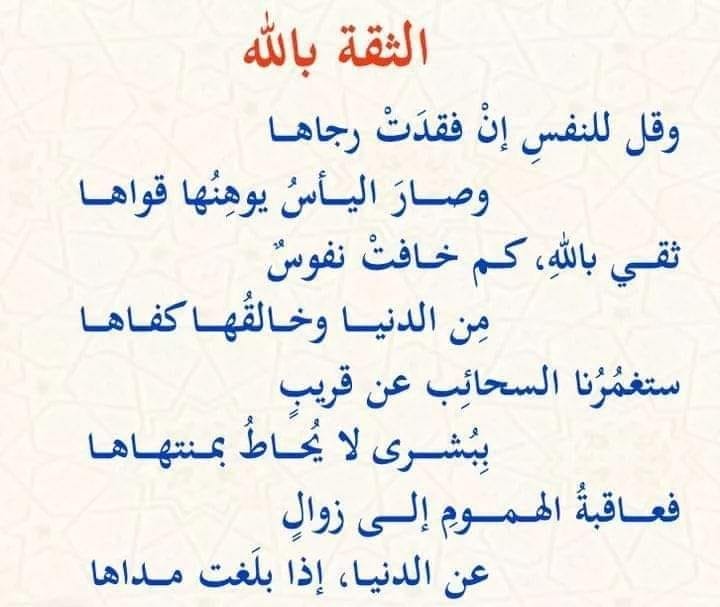 الثقة بالله
وقل للنفسِ إنْ فقدَتْ رجاها
وصارَ اليأسُ يوهِنُها قواها
ثقي باللهِ، كم خافتْ نفوسٌ
مِن الدنيا وخالقُها كفاها
ستغمُرُنا السحائِب عن قريبٍ
بِبُشرى لا يُحاطُ بمنتهاها
فعاقبةُ الهمومِ إلى زوالٍ
عن الدنيا، إذا بلَغت مداها